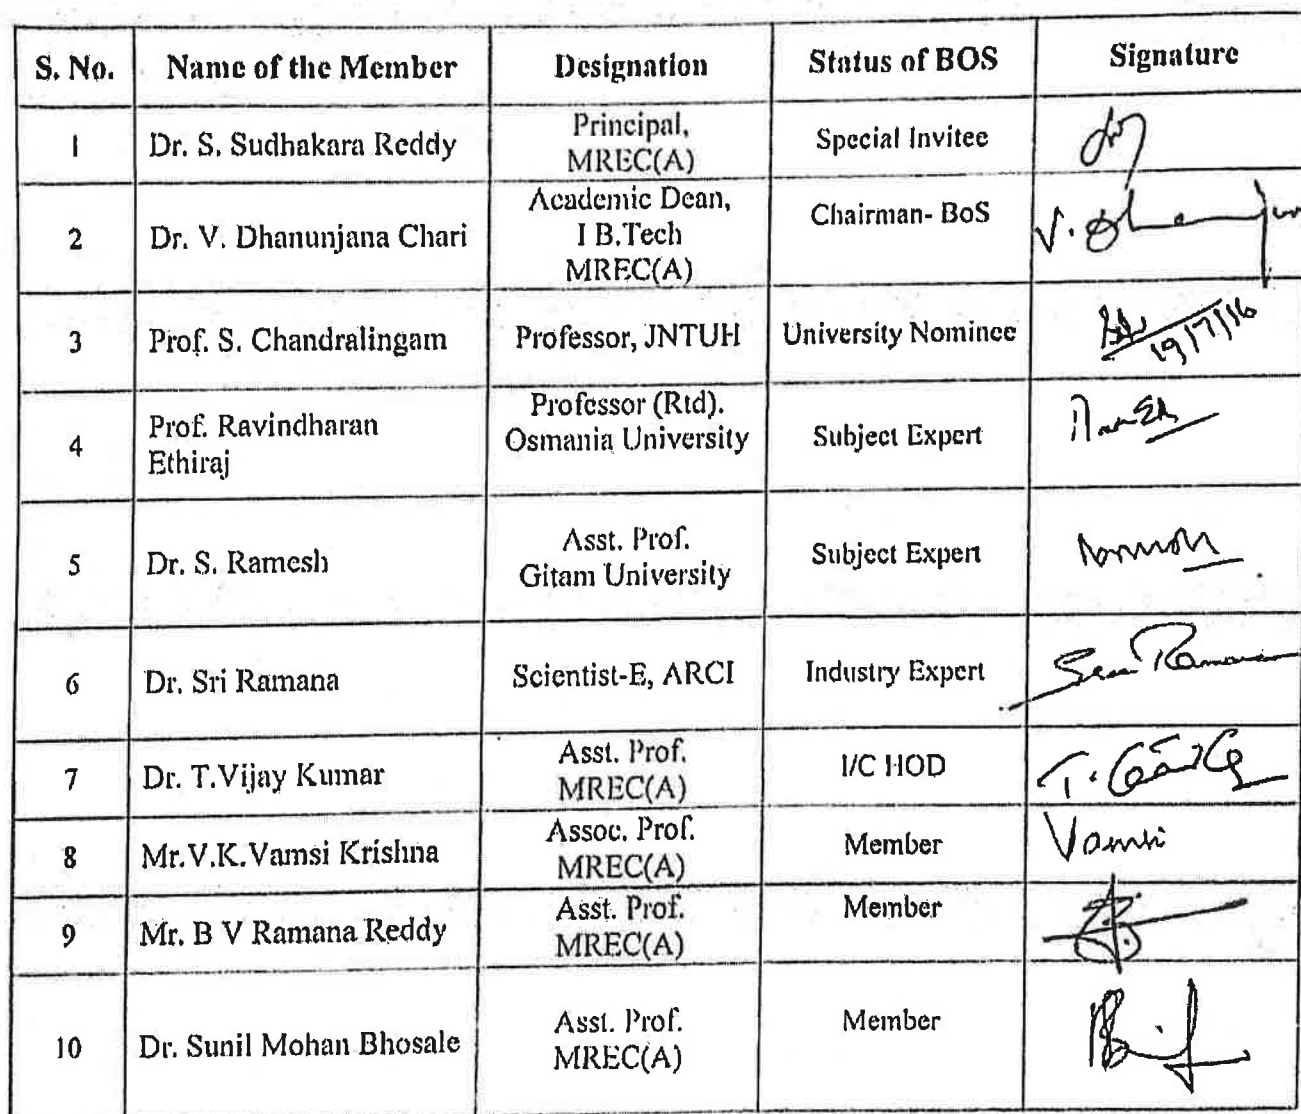 S. No. Name of the Member Designation Status of BOS Signature
1 Dr. S. Sudhakara Reddy Principal, MREC(A) Special Invitee
2 Dr. V. Dhanunjana Chari Academic Dean, I B.Tech MREC(A) Chairman- BoS V.
3 Prof. S. Chandralingam Professor, JNTUH University Nominee 19/7/16
4 Prof. Ravindharan Ethiraj Professor (Rtd). Osmania University Subject Expert
5 Dr. S. Ramesh Asst. Prof. Gitam University Subject Expert
6 Dr. Sri Ramana Scientist-E, ARCI Industry Expert Ramana
7 Dr. T.Vijay Kumar Asst. Prof. MREC(A) I/C HOD T.
8 Mr.V.K.Vamsi Krishna Assoc. Prof. MREC(A) Member Vamsi
9 Mr. B V Ramana Reddy Asst. Prof. MREC(A) Member
10 Dr. Sunil Mohan Bhosale Asst. Prof. MREC(A) Member